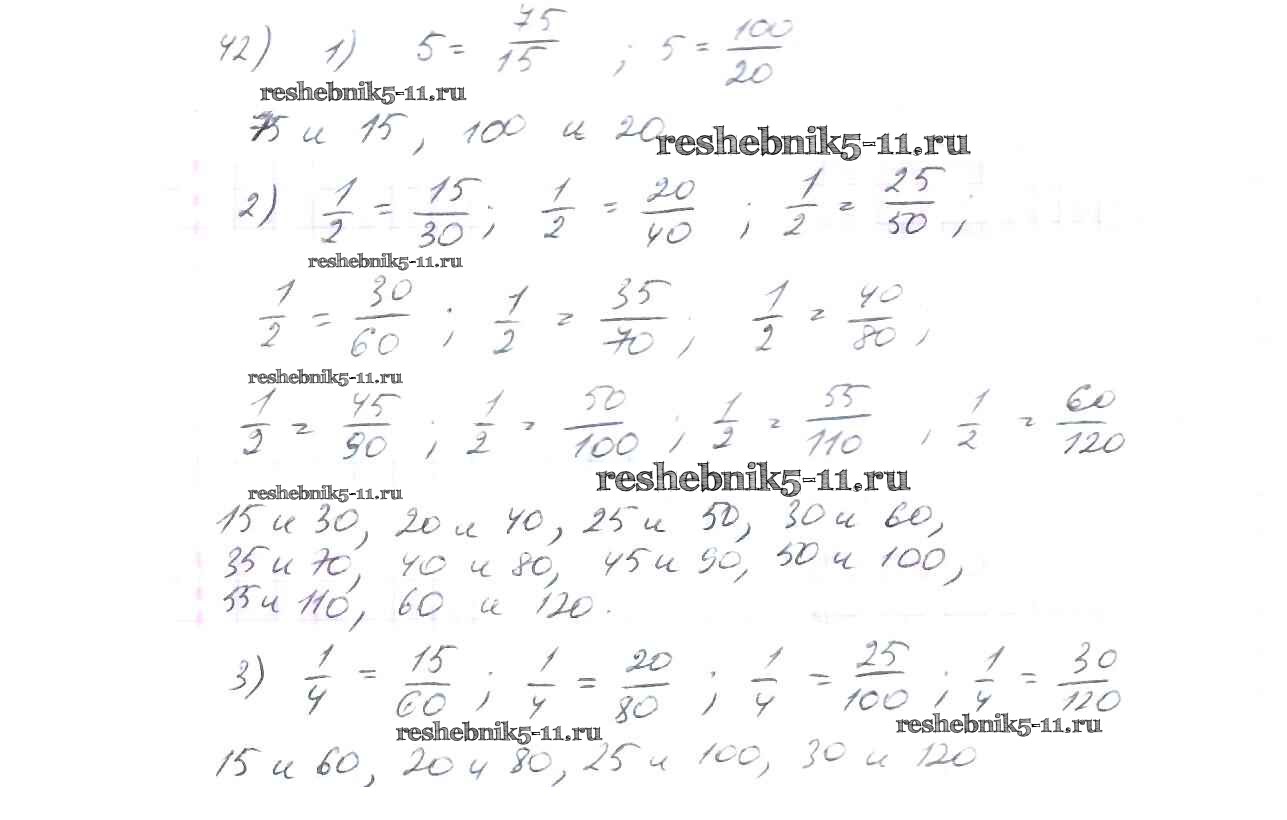 42) 1) 5 = 75/15 ; 5 = 100/20
reshebnik5-11.ru
75 и 15, 100 и 20
reshebnik5-11.ru
2) 1/2 = 15/30; 1/2 = 20/40 ; 1/2 = 25/50 ;
reshebnik5-11.ru
1/2 = 30/60 ; 1/2 = 35/70 ; 1/2 = 40/80 ;
reshebnik5-11.ru
1/2 = 45/90 ; 1/2 = 50/100 ; 1/2 = 55/110 , 1/2 = 60/120
reshebnik5-11.ru
reshebnik5-11.ru
15 и 30, 20 и 40, 25 и 50, 30 и 60,
35 и 70, 40 и 80, 45 и 90, 50 и 100,
55 и 110, 60 и 120.
3) 1/4 = 15/60 ; 1/4 = 20/80 ; 1/4 = 25/100 ; 1/4 = 30/120
reshebnik5-11.ru
reshebnik5-11.ru
15 и 60, 20 и 80, 25 и 100, 30 и 120